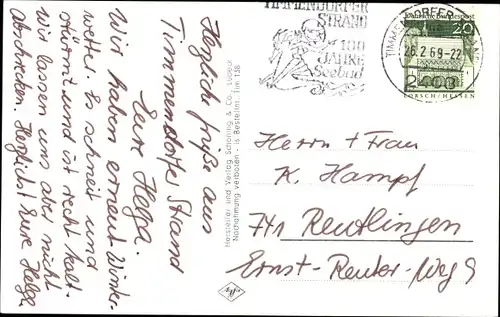 Herzliche Grüße aus
Timmendorfer Strand
Eure Helga.
Wir haben erneut Winter-
wetter. Es schneit und
stürmt und ist recht kalt.
Wir lassen uns aber nicht
abschrecken. Herzlichst Eure Helga
Hersteller und Verlag Schöning & Co., Lübeck
Nachahmung verboten
Bestellnr. Tim 136
TIMMENDORFER
STRAND
100
JAHRE
Seebad
26.2.69-22
2408
Deutsche Bundespost
20
LORSCH/HESSEN
Herrn + Frau
K. Hampf
741 Reutlingen
Ernst-Reuter-Weg 9